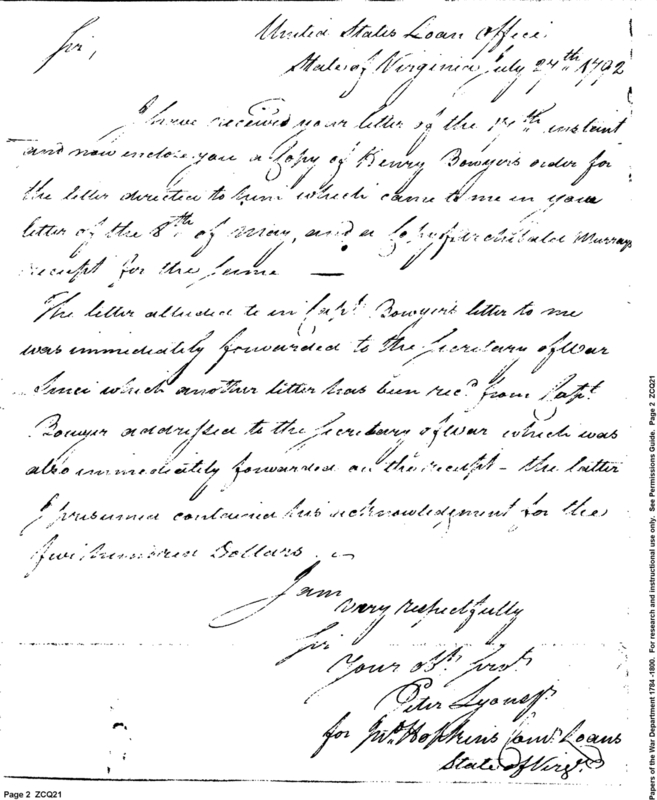 United States Loan Office
Sir,
State of Virginia July 27th 1792
I have received your letter of the 17th instant
and now enclose you a Copy of Henry Bowyer's order for
the letter directed to him which came to me in your
letter of the 8th of May, and a Copy of Archibald Murrays
receipt for the same —
The letter alluded to in Capt. Bowyer's letter to me
was immediately forwarded to the Secretary of War
Since which another letter has been recd. from Capt.
Bowyer addressed to the Secretary of War which was
also immediately forwarded on the receipt - the latter
I presumed contained his acknowledgement for the
five hundred Dollars.
I am
very respectfully
Sir
Your obt. servt.
Peter Lyons Jr.
for Jno. Hopkins Comr. Loans
State of Virga.
Page 2 ZCQ21
Papers of the War Department 1784 -1800. For research and instructional use only. See Permissions Guide. Page 2 ZCQ21